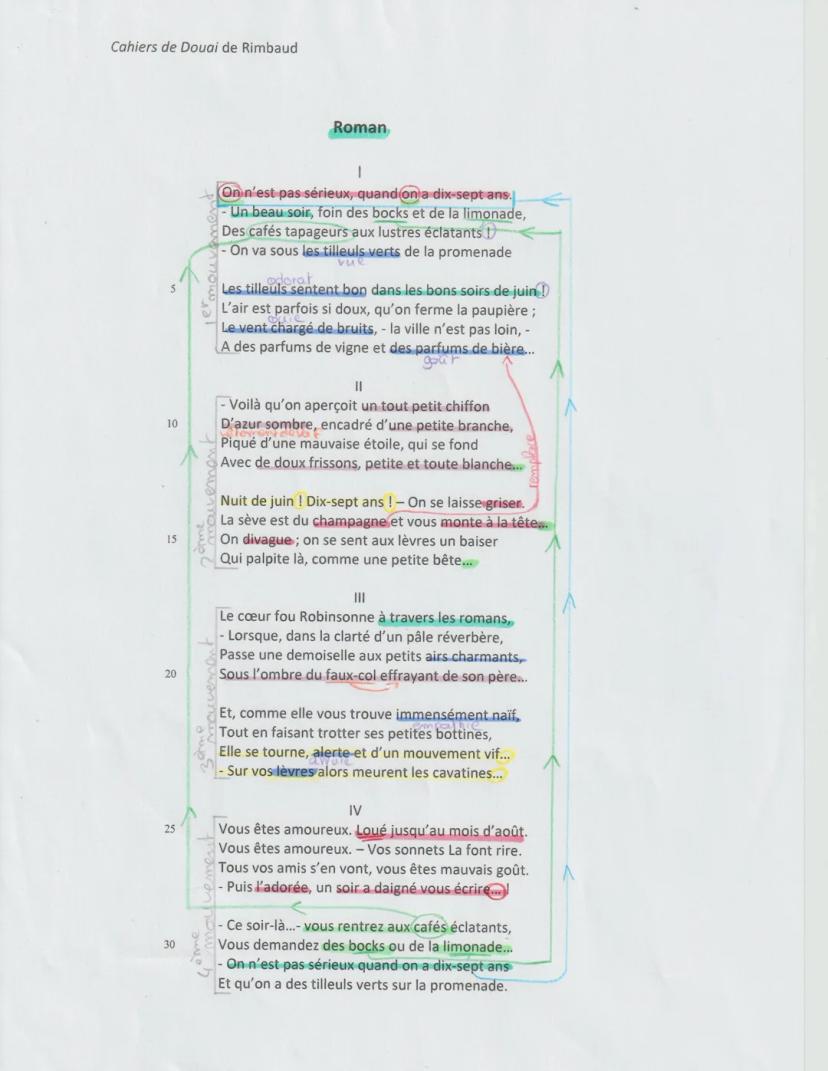 Cahiers de Douai de Rimbaud
Roman
I
1er mouvement
On n'est pas sérieux, quand on a dix-sept ans.
- Un beau soir, foin des bocks et de la limonade,
Des cafés tapageurs aux lustres éclatants !
- On va sous les tilleuls verts de la promenade
vue
odorat
5 Les tilleuls sentent bon dans les bons soirs de juin !
L'air est parfois si doux, qu'on ferme la paupière ;
ouïe
Le vent chargé de bruits, - la ville n'est pas loin, -
A des parfums de vigne et des parfums de bière...
goût
II
2ème mouvement
- Voilà qu'on aperçoit un tout petit chiffon
10 D'azur sombre, encadré d'une petite branche,
Piqué d'une mauvaise étoile, qui se fond
Avec de doux frissons, petite et toute blanche...
remplace
Nuit de juin ! Dix-sept ans ! – On se laisse griser.
La sève est du champagne et vous monte à la tête...
15 On divague ; on se sent aux lèvres un baiser
Qui palpite là, comme une petite bête...
III
3ème mouvement
Le cœur fou Robinsonne à travers les romans,
- Lorsque, dans la clarté d'un pâle réverbère,
Passe une demoiselle aux petits airs charmants,
20 Sous l'ombre du faux-col effrayant de son père...
Et, comme elle vous trouve immensément naïf,
empathie
Tout en faisant trotter ses petites bottines,
Elle se tourne, alerte et d'un mouvement vif...
- Sur vos lèvres alors meurent les cavatines...
IV
4ème mouvement
25 Vous êtes amoureux. Loué jusqu'au mois d'août.
Vous êtes amoureux. – Vos sonnets La font rire.
Tous vos amis s'en vont, vous êtes mauvais goût.
- Puis l'adorée, un soir a daigné vous écrire...!
- Ce soir-là...- vous rentrez aux cafés éclatants,
30 Vous demandez des bocks ou de la limonade...
- On n'est pas sérieux quand on a dix-sept ans
Et qu'on a des tilleuls verts sur la promenade.